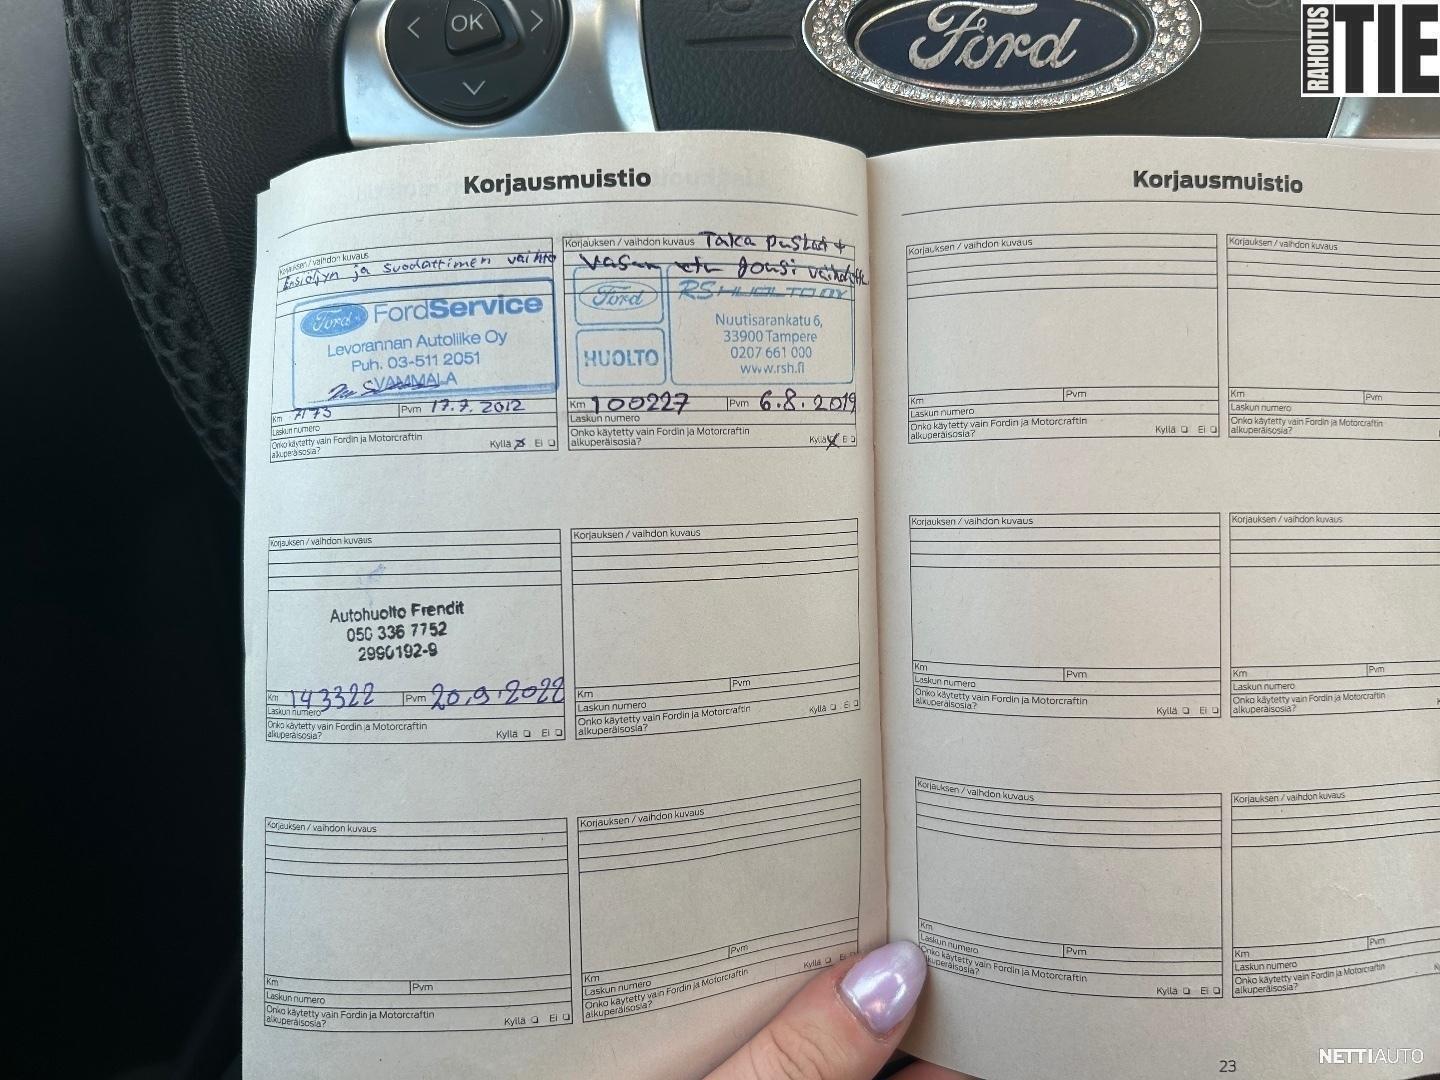 OK
Ford
RAHOITUS
TIE
Korjausmuistio
Korjauksen / vaihdon kuvaus
Ensiöljyn ja suodattimen vaihto
Ford FordService
Levorannan Autoliike Oy
Puh. 03-511 2051
VAMMALA
Km 7175 Pvm 17.7. 2012
Laskun numero
Onko käytetty vain Fordin ja Motorcraftin
alkuperäisosia? Kyllä Ei
Korjauksen / vaihdon kuvaus Taka puslat +
Vasen etu Jousi
Ford RS HUOLTO OY
HUOLTO
Nuutisarankatu 6,
33900 Tampere
0207 661 000
www.rsh.fi
Km 100227 Pvm 6.8.2019
Laskun numero
Onko käytetty vain Fordin ja Motorcraftin
alkuperäisosia? Kyllä Ei
Korjauksen / vaihdon kuvaus
Autohuolto Frendit
050 336 7752
2990192-9
Km 143322 Pvm 20.9.2022
Laskun numero
Onko käytetty vain Fordin ja Motorcraftin
alkuperäisosia? Kyllä Ei
Korjauksen / vaihdon kuvaus
Km Pvm
Laskun numero
Onko käytetty vain Fordin ja Motorcraftin
alkuperäisosia? Kyllä Ei
Korjauksen / vaihdon kuvaus
Km Pvm
Laskun numero
Onko käytetty vain Fordin ja Motorcraftin
alkuperäisosia? Kyllä Ei
Korjauksen / vaihdon kuvaus
Km Pvm
Laskun numero
Onko käytetty vain Fordin ja Motorcraftin
alkuperäisosia? Kyllä Ei
Korjausmuistio
Korjauksen / vaihdon kuvaus
Km Pvm
Laskun numero
Onko käytetty vain Fordin ja Motorcraftin
alkuperäisosia? Kyllä Ei
Korjauksen / vaihdon kuvaus
Km Pvm
Laskun numero
Onko käytetty vain Fordin ja Motorcraftin
alkuperäisosia?
Korjauksen / vaihdon kuvaus
Km Pvm
Laskun numero
Onko käytetty vain Fordin ja Motorcraftin
alkuperäisosia? Kyllä Ei
Korjauksen / vaihdon kuvaus
Km Pvm
Laskun numero
Onko käytetty vain Fordin ja Motorcraftin
alkuperäisosia?
Korjauksen / vaihdon kuvaus
Km Pvm
Laskun numero
Onko käytetty vain Fordin ja Motorcraftin
alkuperäisosia? Kyllä Ei
Korjauksen / vaihdon kuvaus
Km Pvm
Laskun numero
Onko käytetty vain Fordin ja Motorcraftin
alkuperäisosia?
23
NETTIAUTO